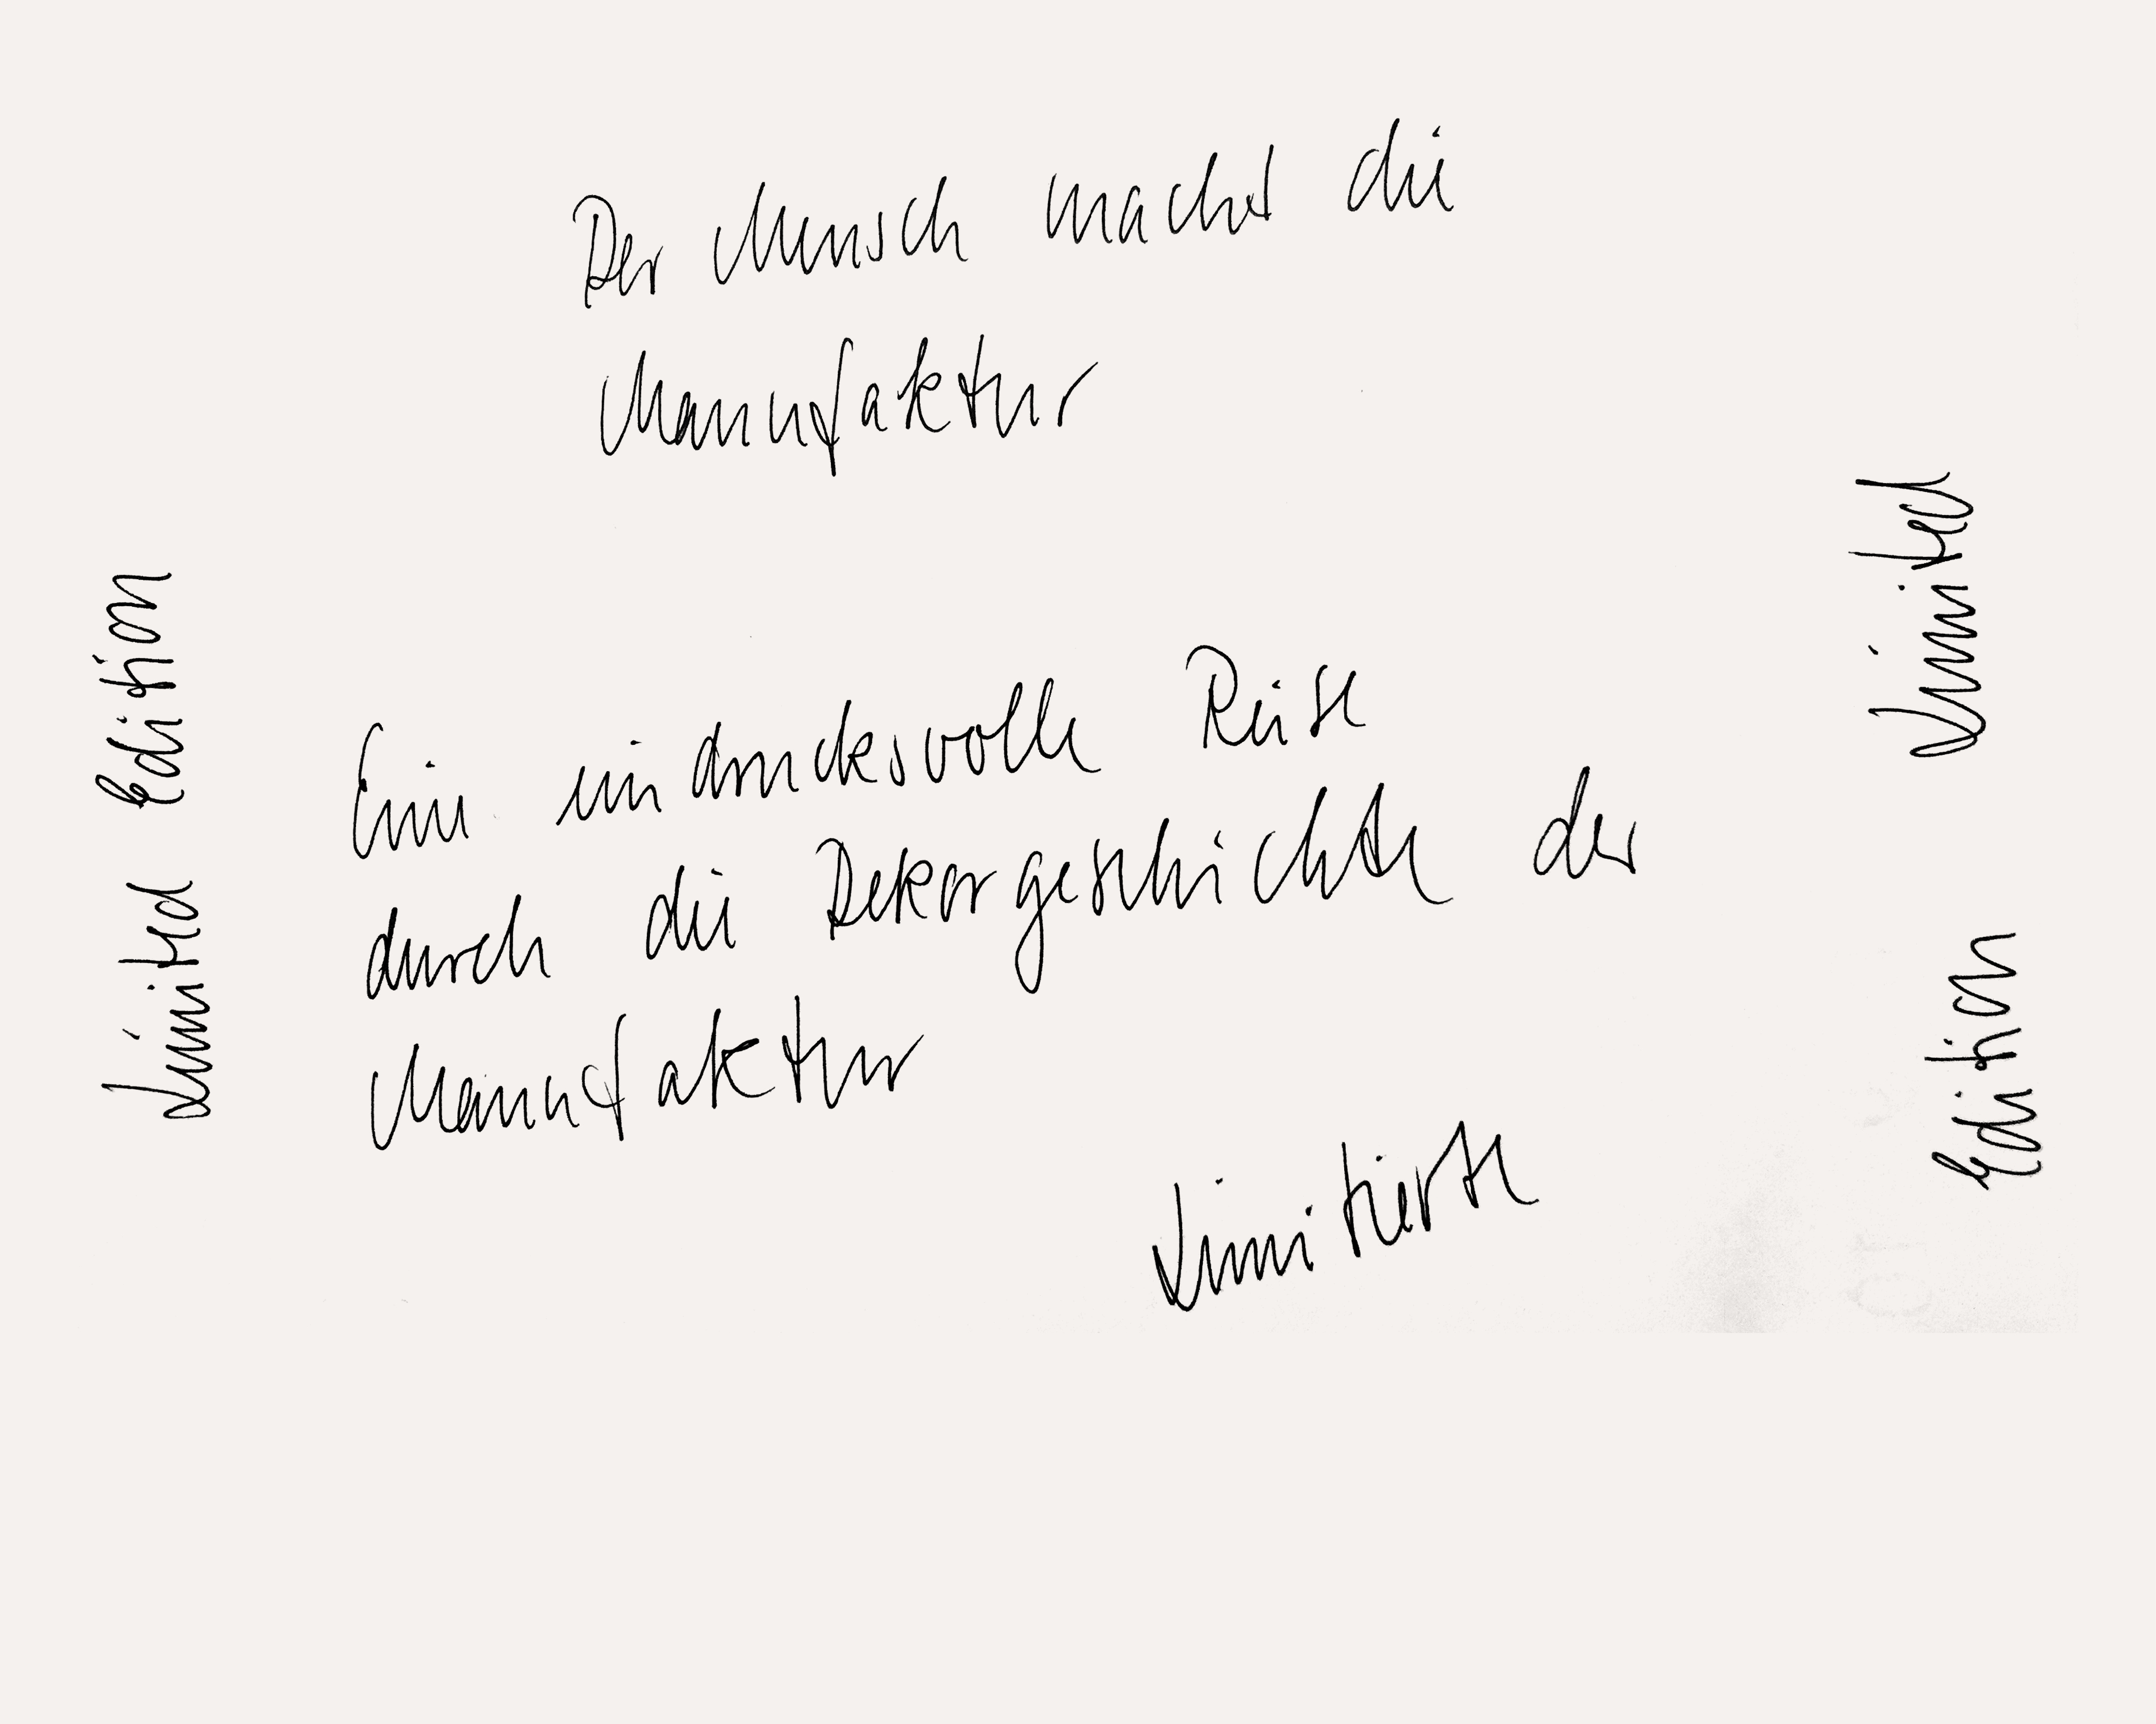 Der Mensch macht die
Manufaktur
Limited Edition
Eine eindrucksvolle Reise
durch die Dekorgeschichte der
Manufaktur
Limitierte
Limited
Edition